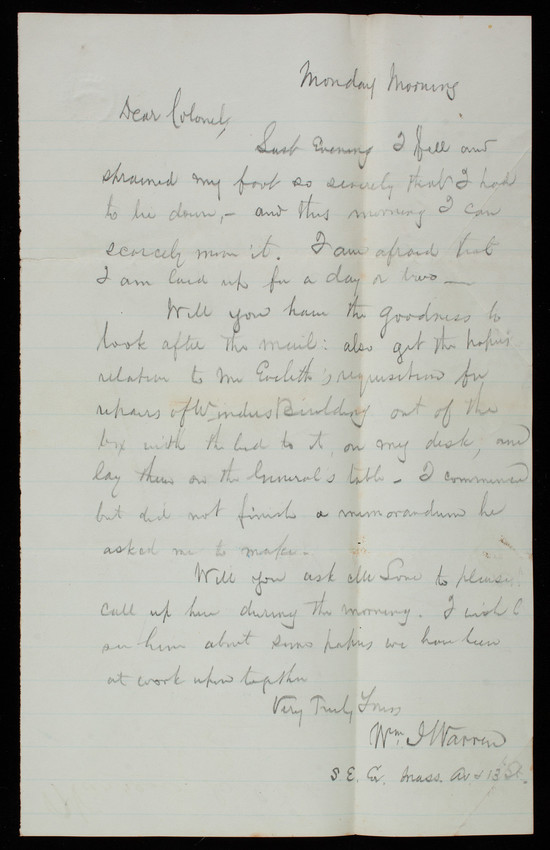 Monday Morning
Dear Colonel,
Last Evening I fell and
strained my foot so severely that I had
to lie down, – and this morning I can
scarcely move it. I am afraid that
I am laid up for a day or two —
Will you have the goodness to
look after the mail: also get the papers
relation to Mr Eveleth's requisition for
repairs of Winders Building out of the
box with the lid to it, on my desk, and
lay them on the General's table – I commenced
but did not finish a memorandum he
asked me to make.
Will you ask Mr to please
call up here during the morning. I wish to
see him about some papers we have been
at work upon together
Very Truly Yours
Wm. J Warren
S. E. Cor. Mass. Av & 13 St.